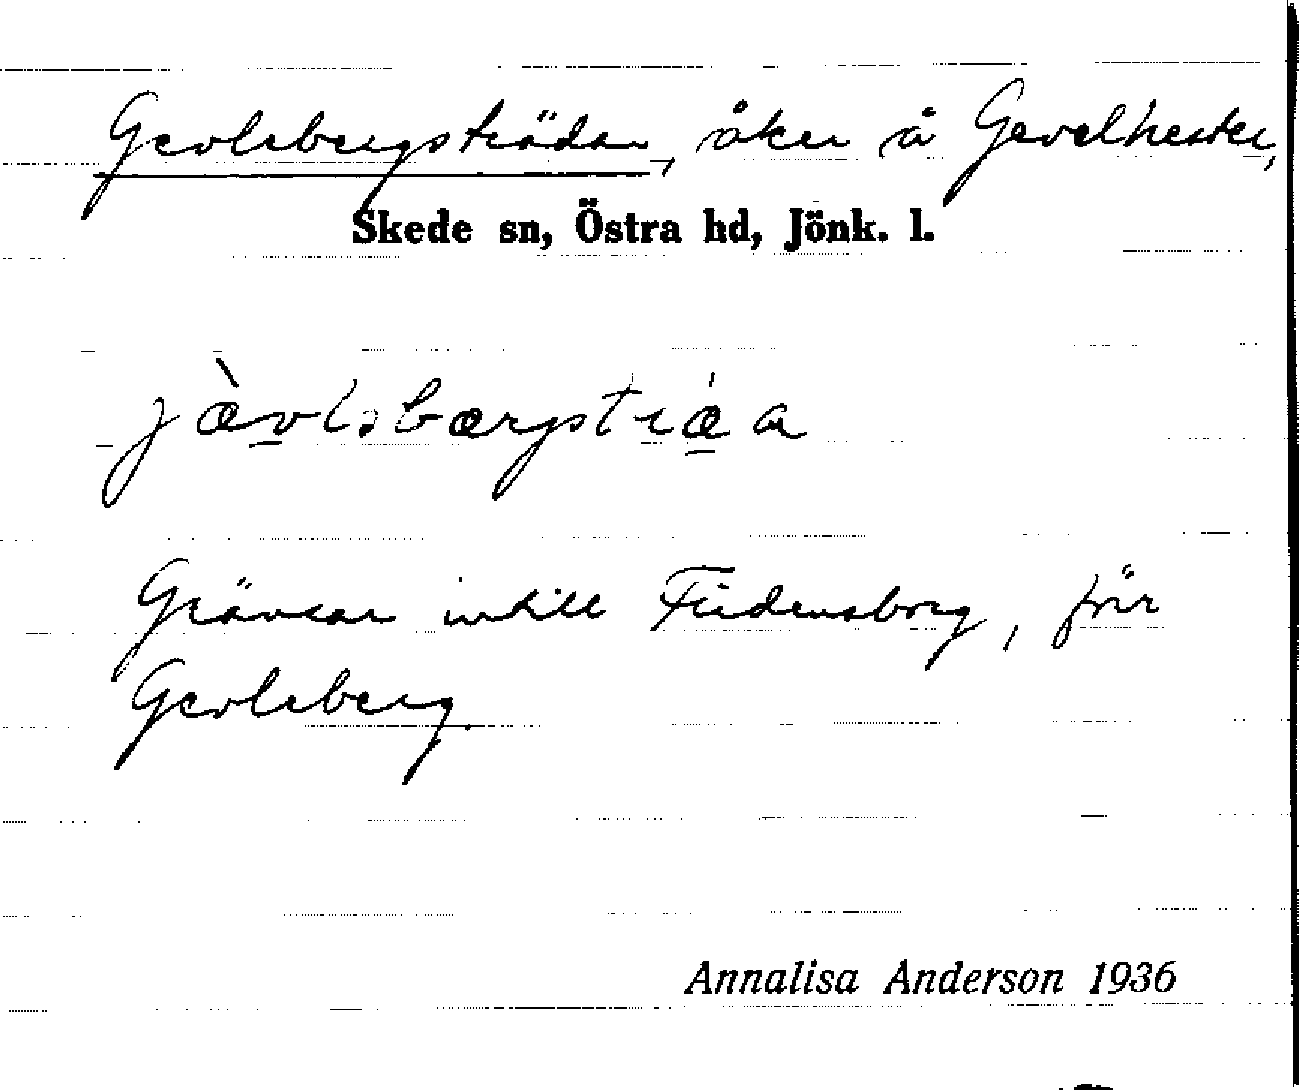 Gevlebergsträdan, åker å Gevelhester,
Skede sn, Östra hd, Jönk. l.
jæ̀vləbærgstræ̍a
Gränsar intill Fredensborg, förr
Gevleberg.
Annalisa Anderson 1936